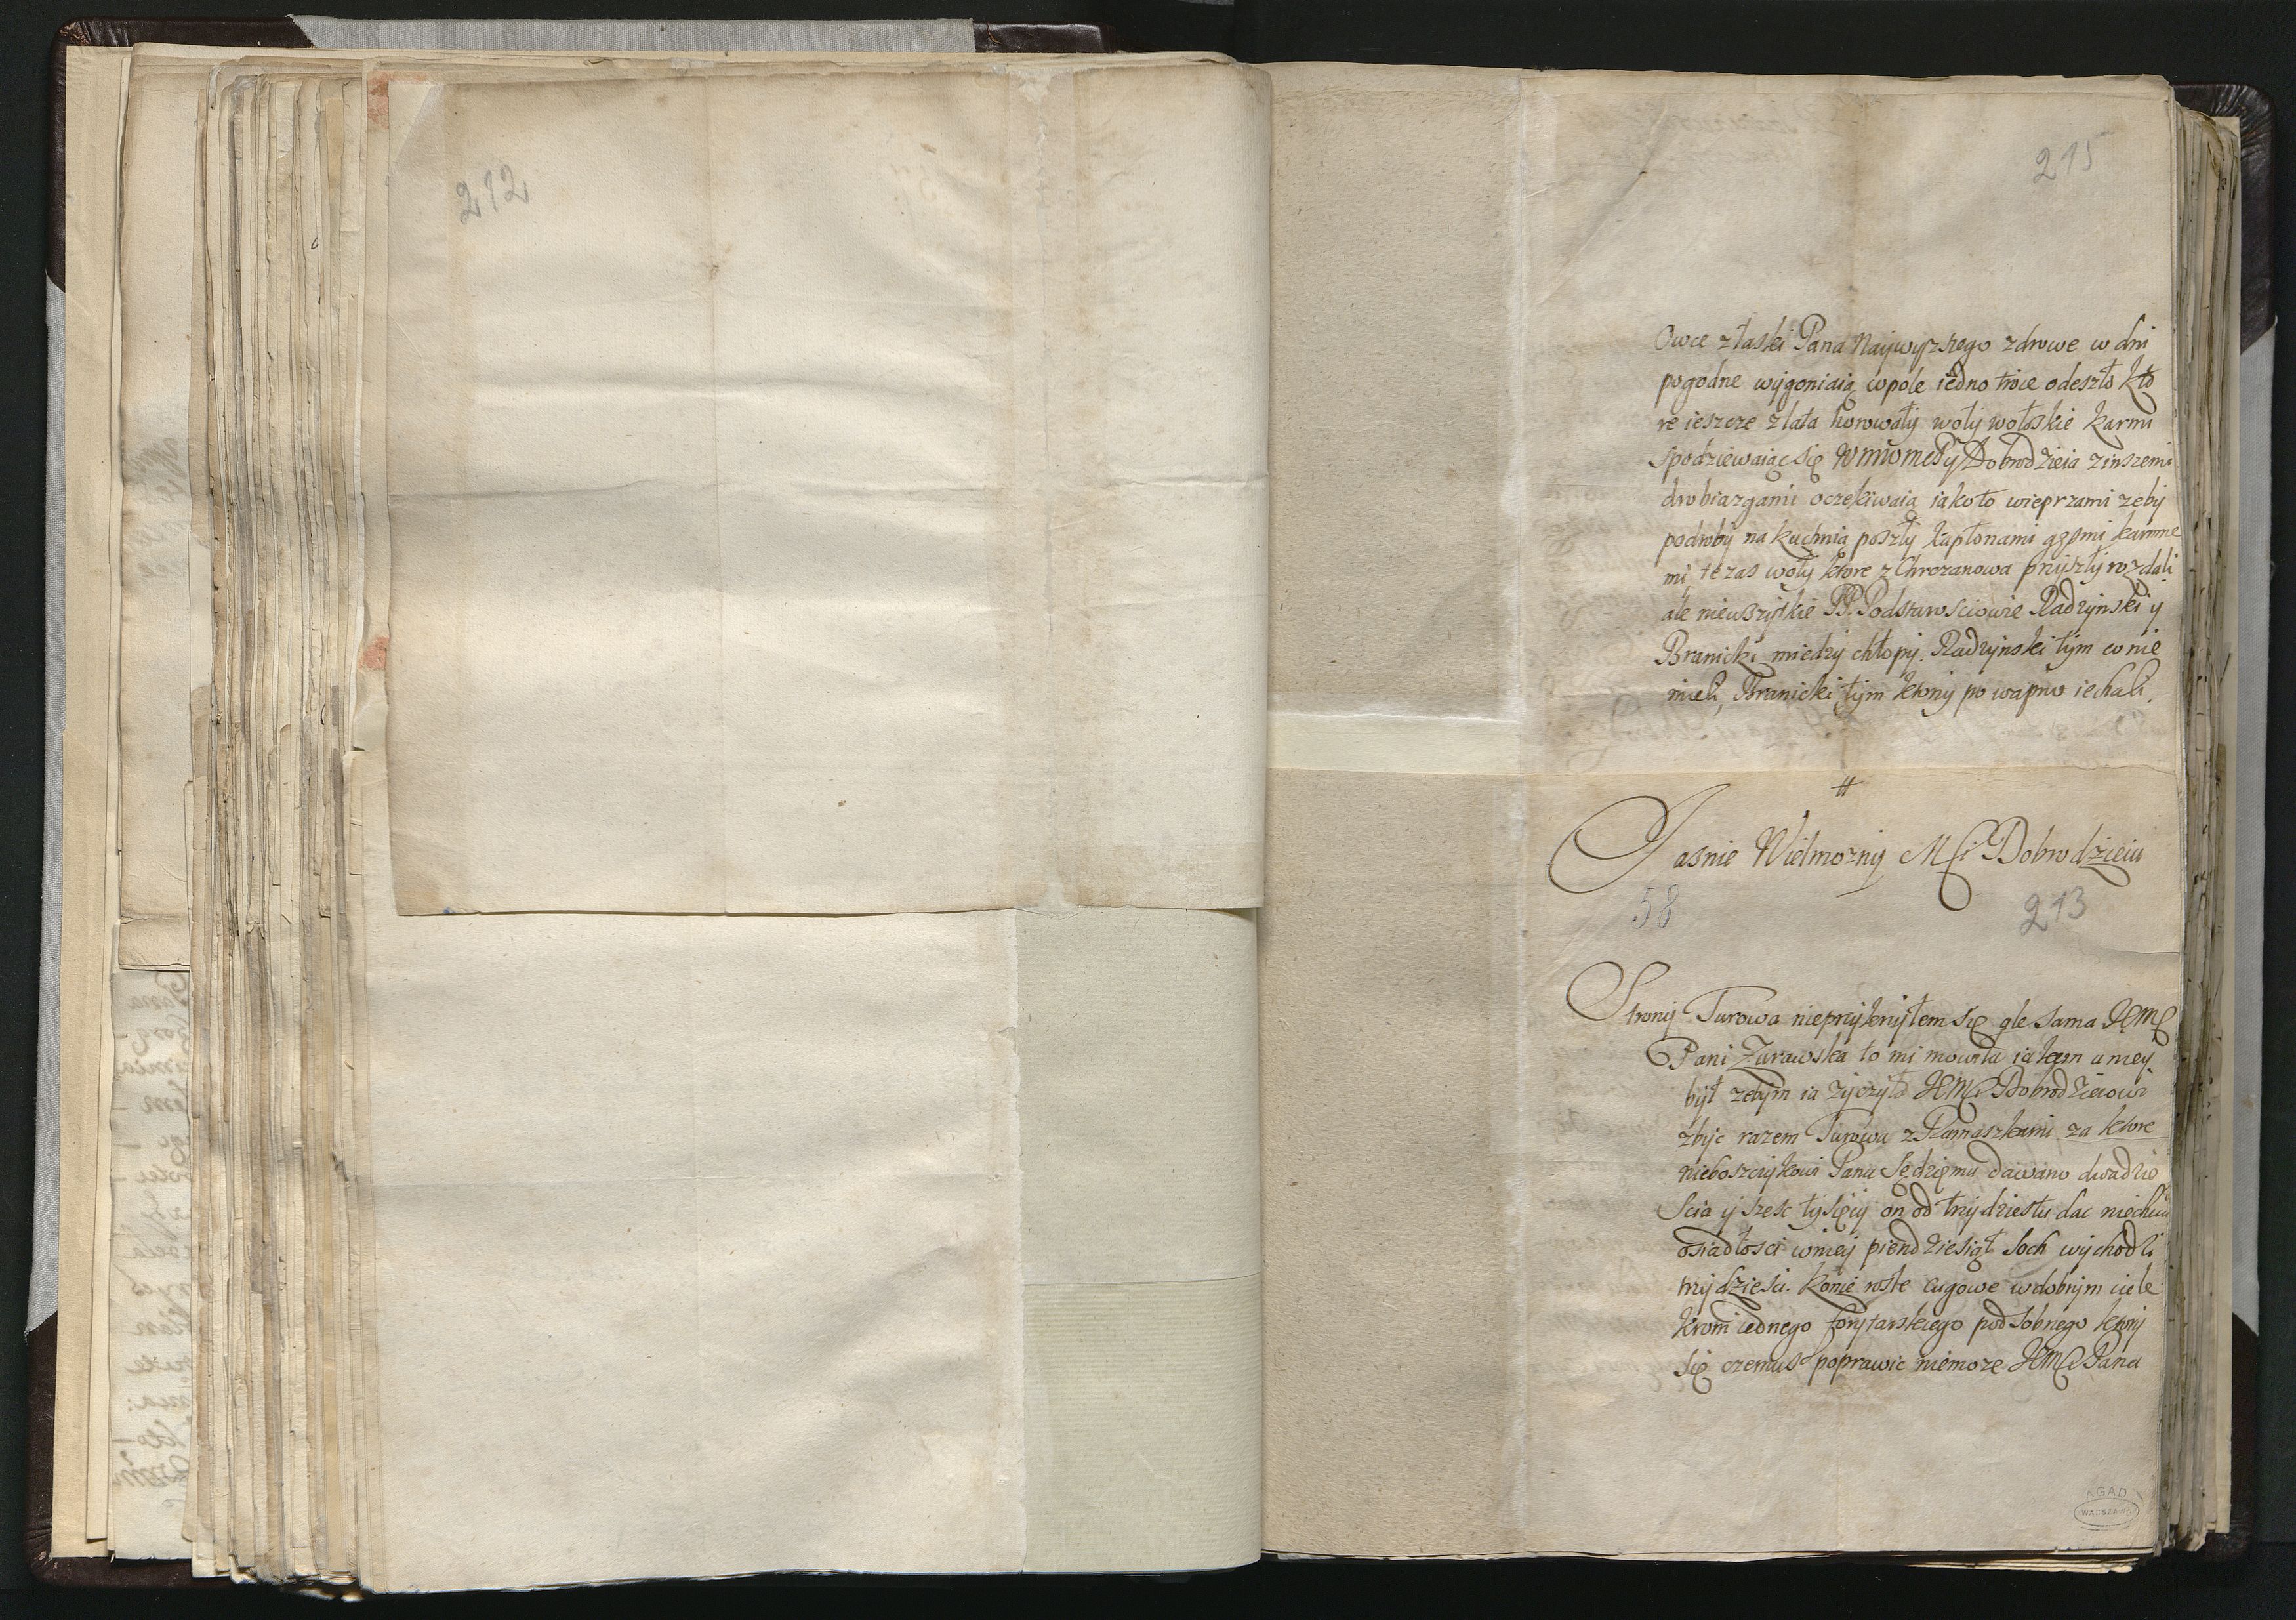 212
215
Owce złaski Pana Naywyzszego zdrowe w dni
pogodne wygoniaią wpole iedno troie odeszło kto
re ieszcze zlata horowały woły wołoskie karmi
spodziewaiąc się Dobrodzieia zinszemi
drobiazgami oczekiwaią iakoto wieprzami zeby
podroby na kuchnią poszły kapłonami gęsmi karmne
mi, te zas woły ktore z Chrczanowa przyszły rozdali
ale niewszytkie PP. Podstarosciowie Radzynski y
Branicki miedzy chłopy. Radzynski tym co nie
mieli, Branicki tym ktorzy po wapno iechali.
#
Jasnie Wielmozny Mci Dobrodzieiu
58
213
Strony Turowa nieprzyłenyłem się ale sama JEMC
Pani Zurawska to mi mowiła iakem u niey
był zebym ia zyczył JEMC Dobrodzieiowi
zbyc razem Turowa z Ramaszkami za ktore
nieboszczykowi Panu Sędziemu dawano dwadzie
scia y szesc tysięcy on od trzydziestu dac niechciał
osiadłosci wniey piendziesiąt Soch wychodzi
trzydziesci. Konie rosłe cugowe wdobrym ciele
krom iednego forytarskiego podsobnego ktory
się czemus poprawic niemoze JEMC Pana
AGAD
WARSZAWA